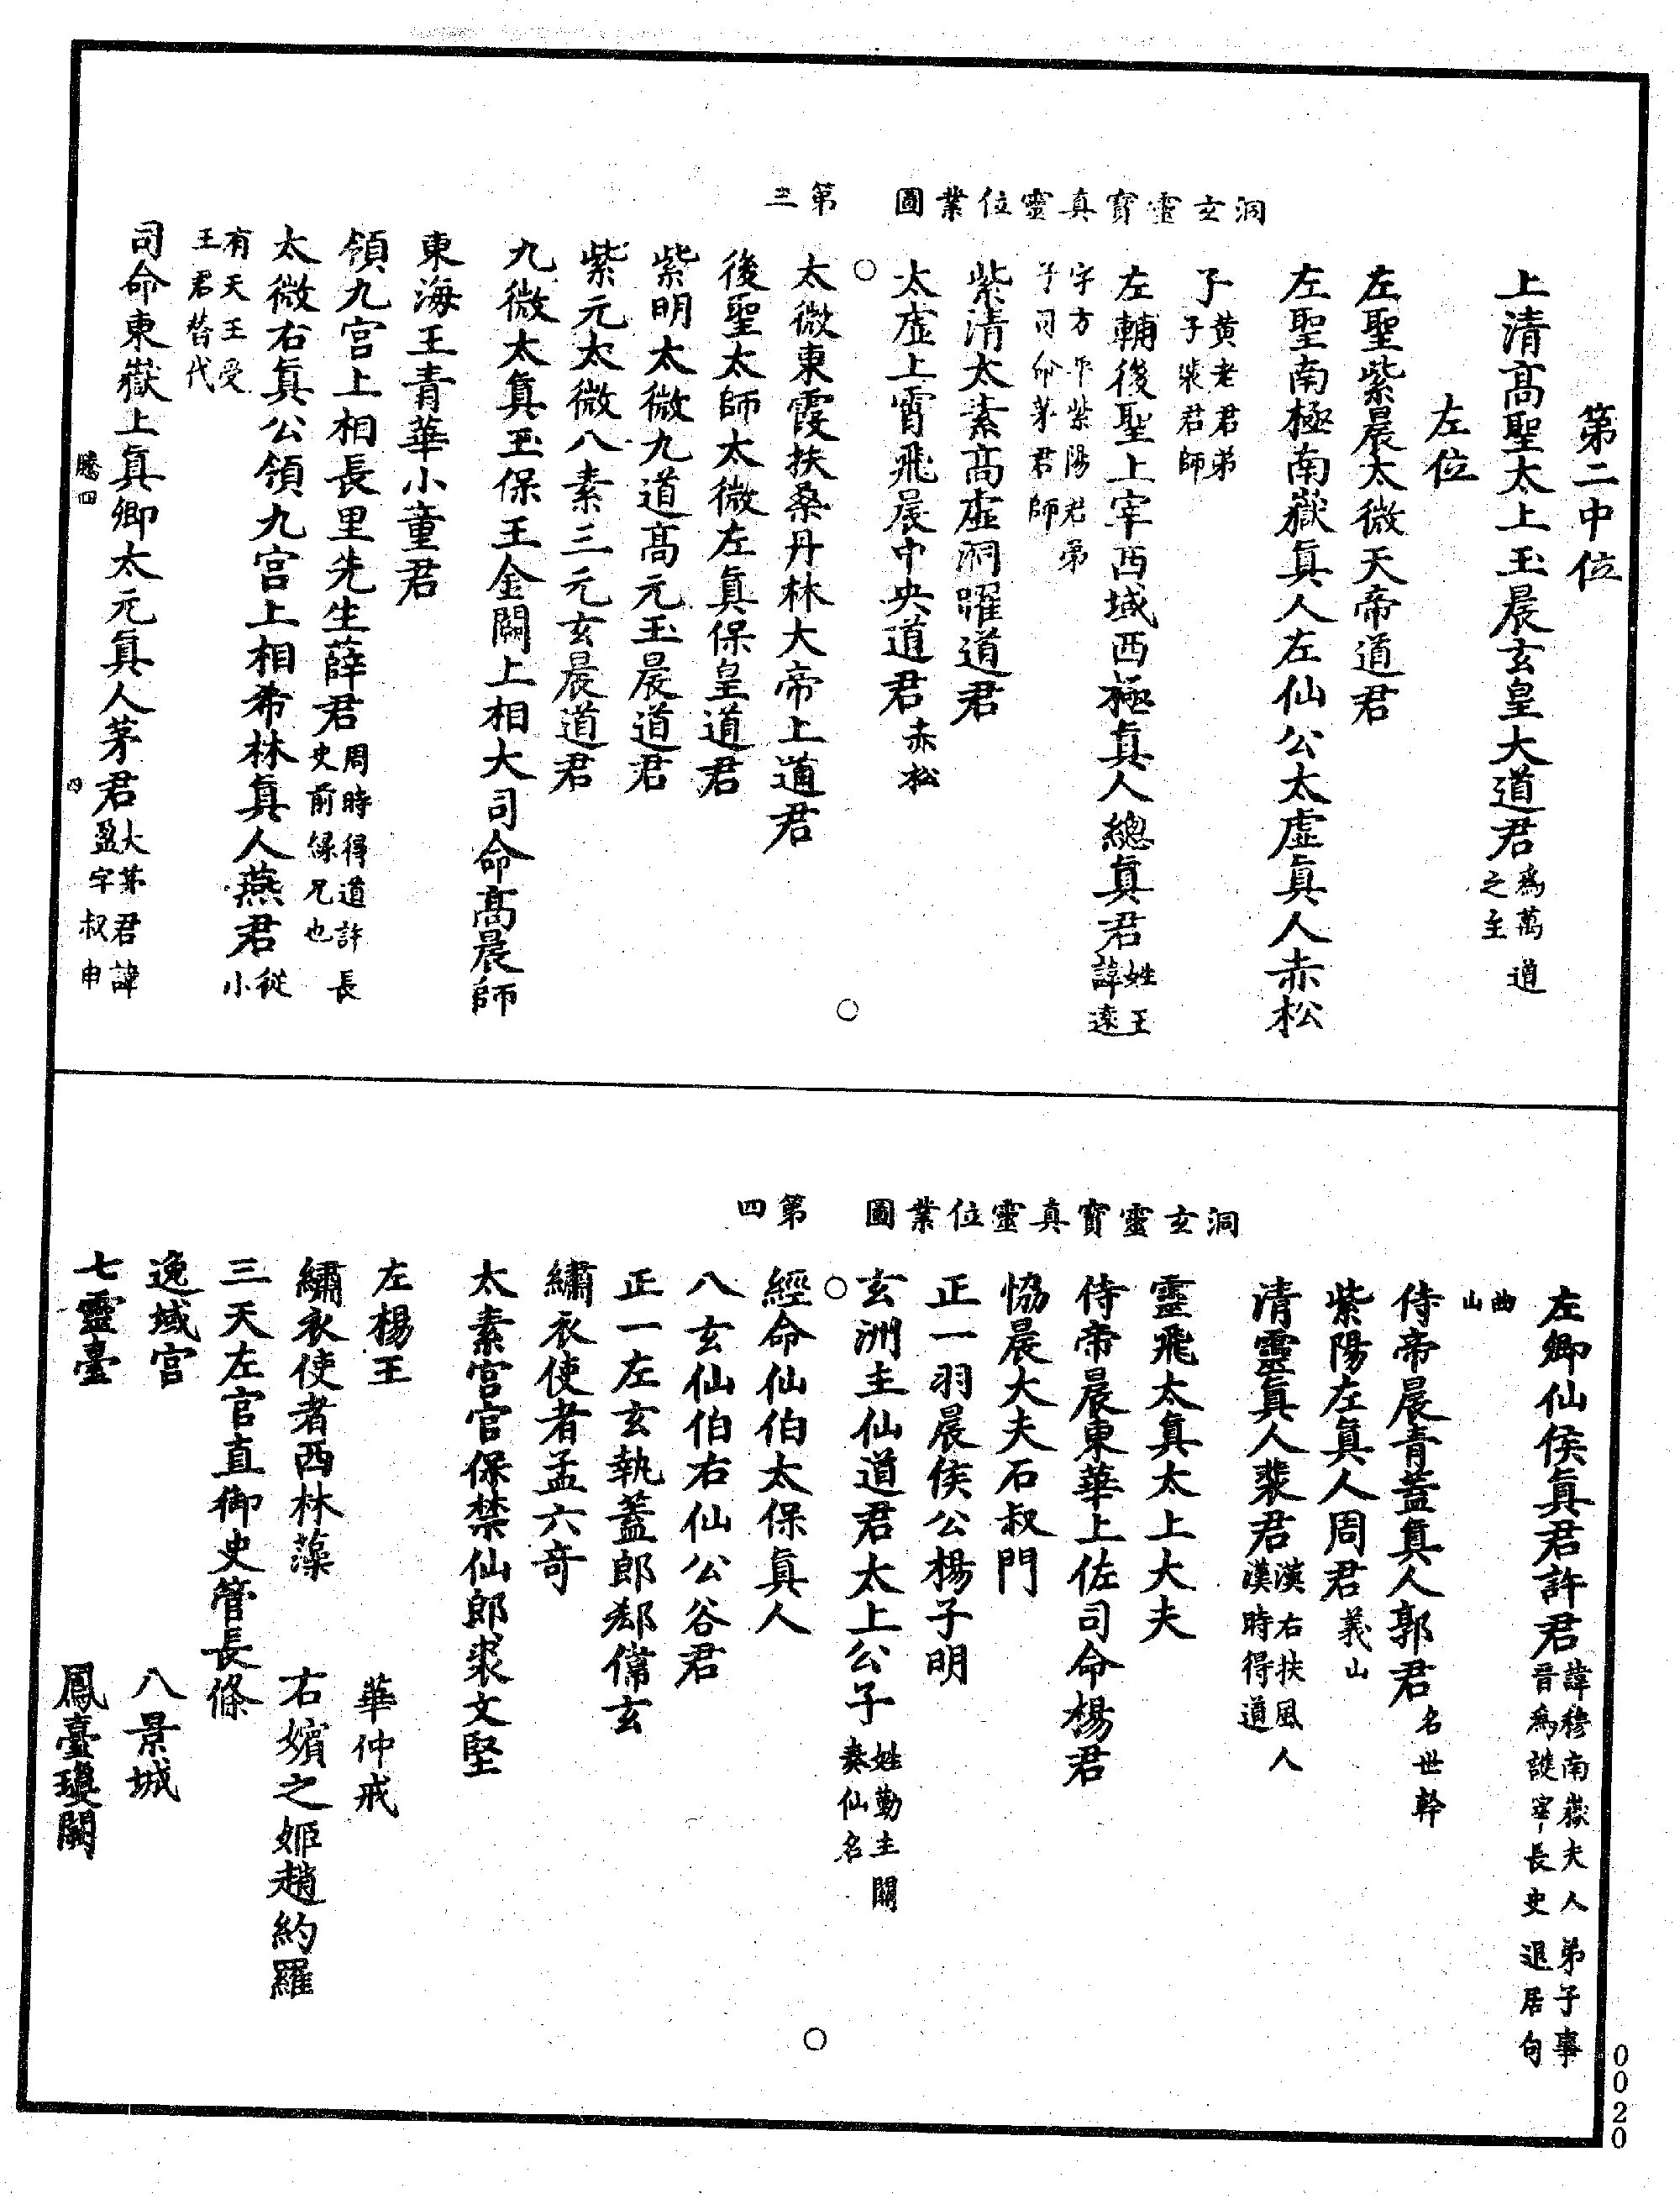 第二中位
上清高聖太上玉晨玄皇大道君爲萬道之主
左位
左聖紫晨太微天帝道君
左聖南極南嶽真人左仙公太虛真人赤松
子黃老君弟子裴君師
左輔後聖上宰西城西極真人總真君姓王諱遠
字方平紫陽君弟子司命茅君師
紫清太素高虛洞曜道君
太虛上霄飛晨中央道君赤松
洞玄靈寶真靈位業圖 第三
太微東霞扶桑丹林大帝上道君
後聖太師太微左真保皇道君
紫明太微九道高元玉晨道君
紫元太微八素三元玄晨道君
九微太真玉保王金闕上相大司命高晨師
東海王青華小童君
領九宮上相長里先生薛君周時得道許長史前緣兄也
太微右真公領九宮上相希林真人燕君從小
有天王受王君替代
司命東嶽上真卿太元真人茅君大茅君諱盈字叔申
騰四
四
左卿仙侯真君許君諱穆南嶽夫人弟子事晋爲護軍長史退居句
曲山
侍帝晨青蓋真人郭君名世幹
紫陽左真人周君義山
清靈真人裴君漢右扶風人漢時得道
靈飛太真太上大夫
侍帝晨東華上佐司命楊君
恊晨大夫石叔門
正一羽晨侯公楊子明
玄洲主仙道君太上公子姓勤主關奏仙名
洞玄靈寶真靈位業圖 第四
經命仙伯太保真人
八玄仙伯右仙公谷君
正一左玄執蓋郎郄偉玄
繡衣使者孟六奇
太素宮官保禁仙郎裘文堅
左楊王 華仲戒
繡衣使者西林藻 右嬪之姬趙約羅
三天左官直御史管長條
逸域宮 八景城
七靈臺 鳳臺瓊闕
0020